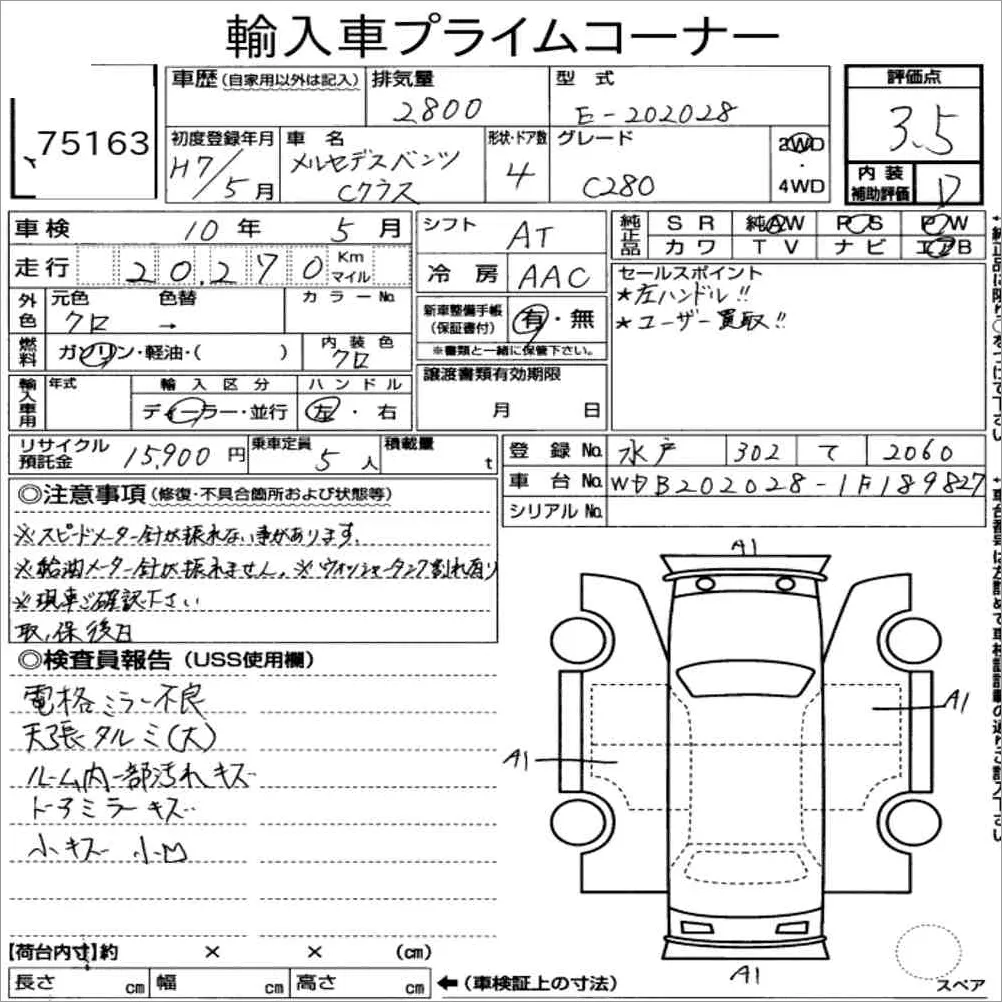 輸入車プライムコーナー
75163
車歴(自家用以外は記入) 排気量 2800 型式 E-202028
評価点 3.5
初度登録年月 H7/5月 車名 メルセデスベンツ Cクラス 形状・ドア数 4 グレード C280 2WD・4WD
内装補助評価 D
車検 10年 5月 シフト AT
純正品 SR 純AW PS PW
カワ TV ナビ エアB
走行 20,270 Km マイル 冷房 AAC
セールスポイント
★左ハンドル!!
★ユーザー買取!!
外色 元色 クロ 色替 → カラーNo.
新車整備手帳(保証書付) 有・無
※書類と一緒に保管下さい。
燃料 ガソリン・軽油・( ) 内装色 クロ
譲渡書類有効期限
月 日
輸入車用 年式 輸入区分 ディーラー・並行 ハンドル 左・右
リサイクル預託金 15,900円 乗車定員 5人 積載量 t
登録No. 水戸 302 て 2060
車台No. WDB202028-1F189827
シリアルNo.
◎注意事項(修復・不具合箇所および状態等)
※スピードメーター針が振れない事があります。
※給油メーター針が振れません。※ウォッシャータンク割れ有り
※現車ご確認下さい
取,保後日
◎検査員報告(USS使用欄)
電格ミラー不良
天張タルミ(大)
ルーム内一部汚れキズ
ドアミラーキズ
小キズ 小凹
A1
A1
A1
A1
【荷台内寸】約 × × (cm)
長さ cm 幅 cm 高さ cm ←(車検証上の寸法)
スペア